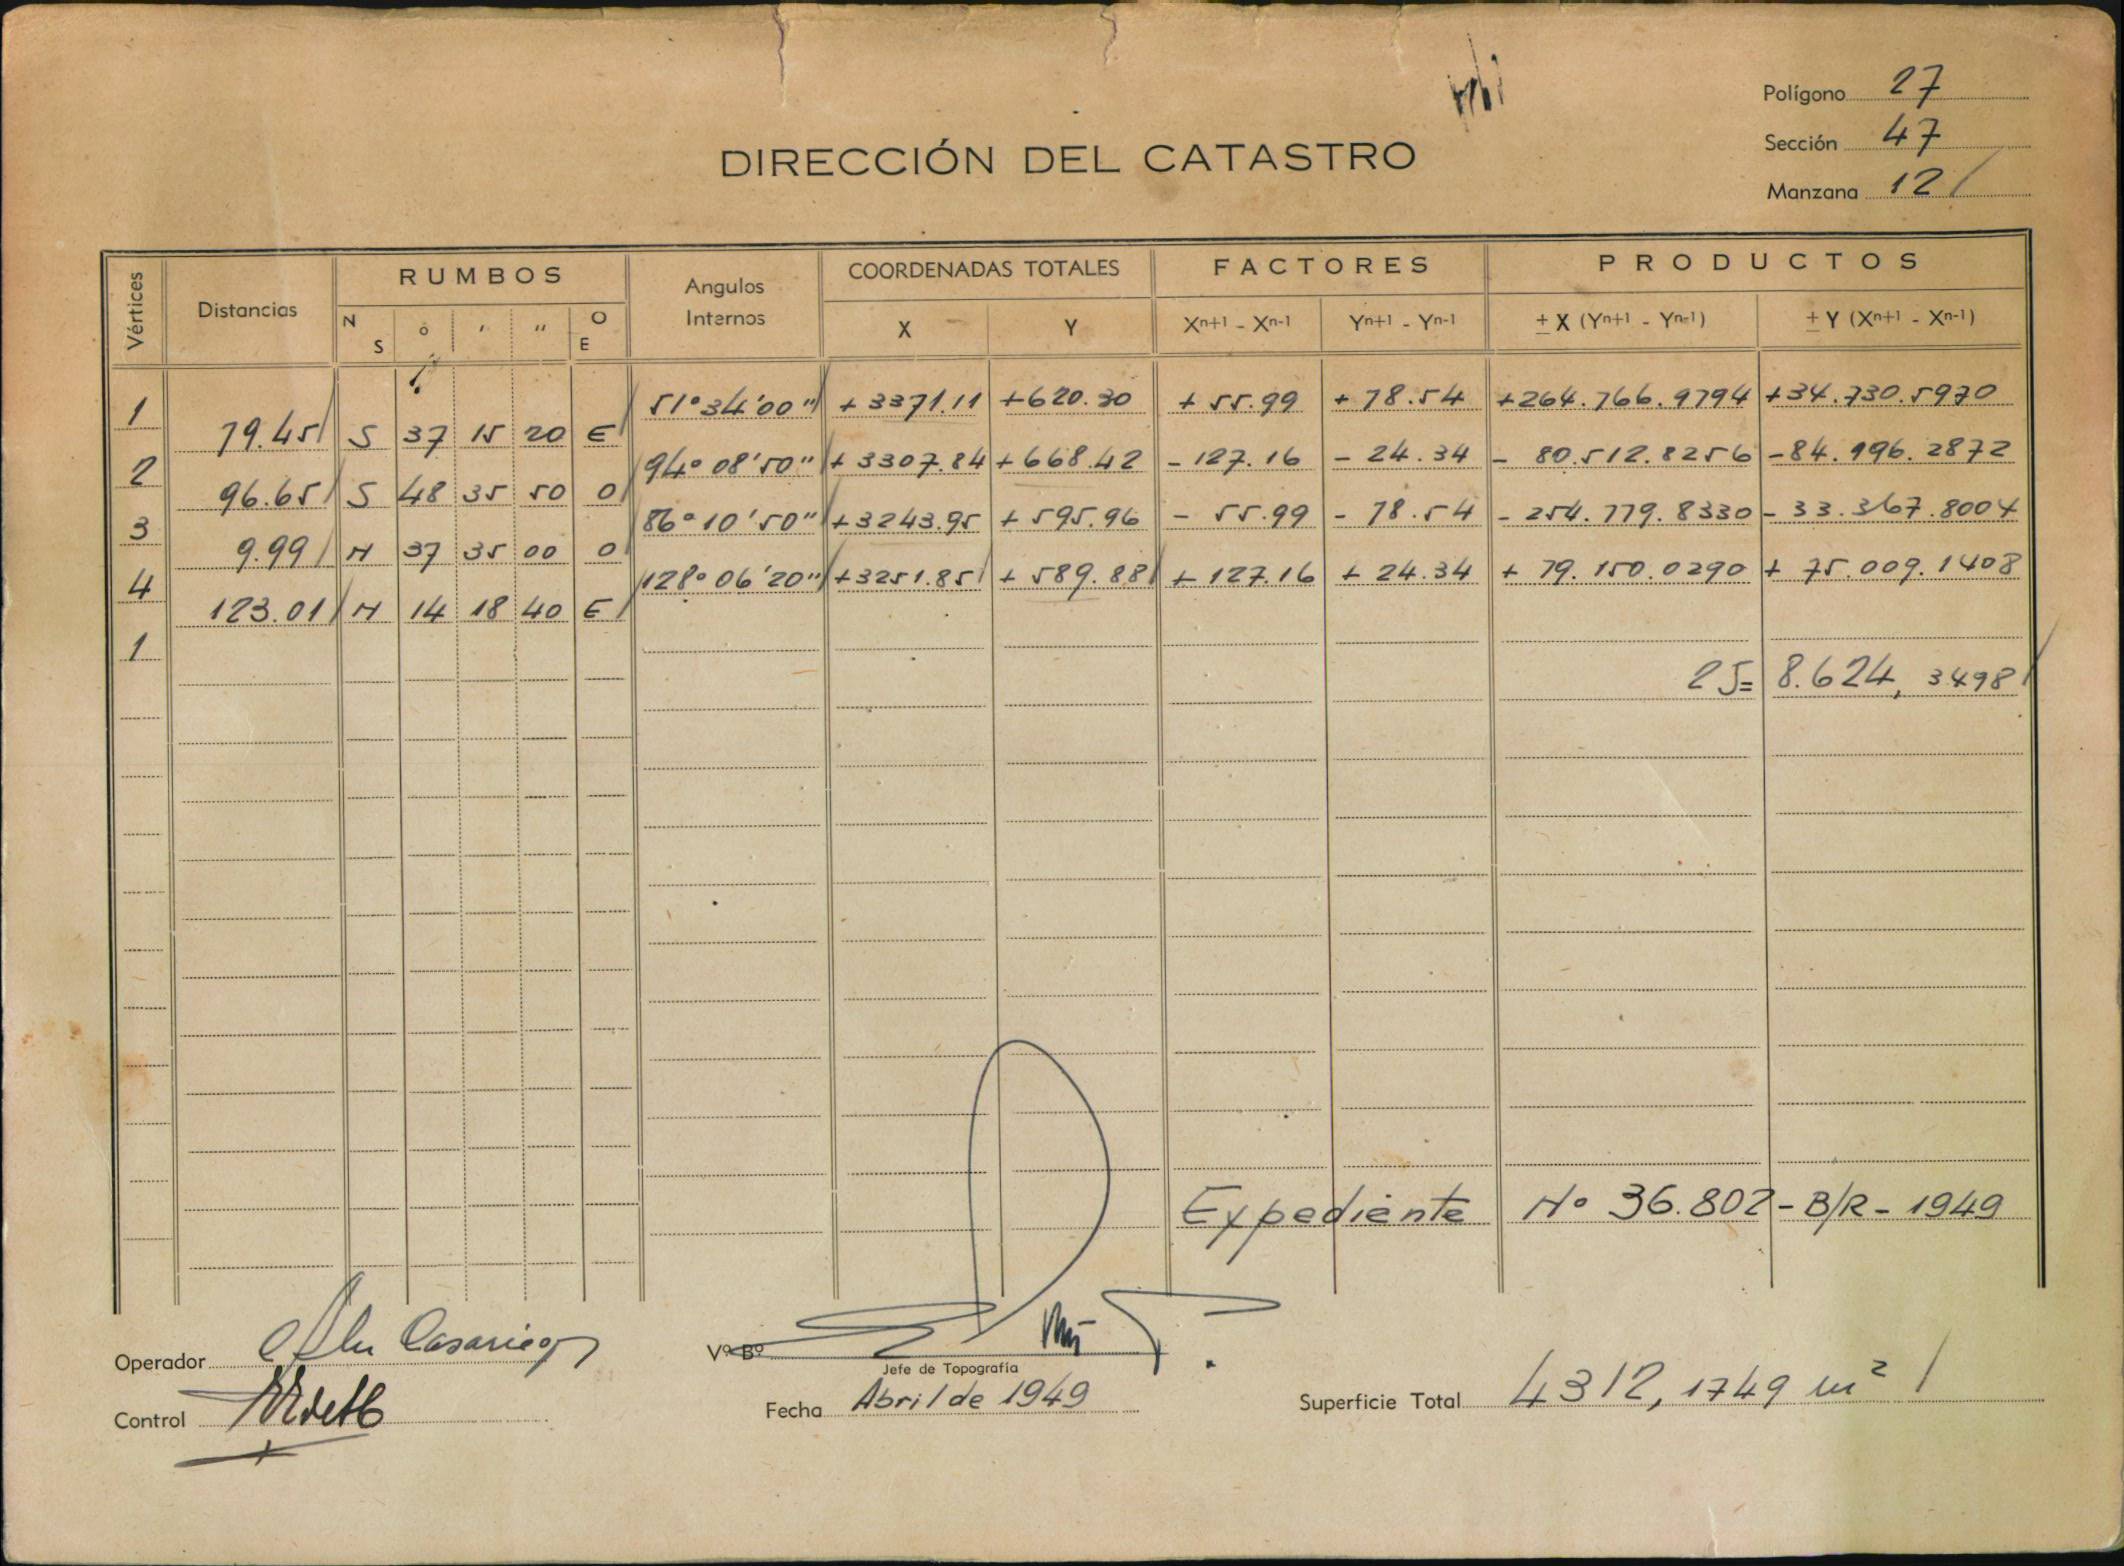 Polígono 27
DIRECCIÓN DEL CATASTRO
Sección 47
Manzana 12
Vértices Distancias RUMBOS Angulos Internos COORDENADAS TOTALES FACTORES PRODUCTOS
N S o ' " O E X Y Xn+1 - Xn-1 Yn+1 - Yn-1 ± X (Yn+1 - Yn-1) ± Y (Xn+1 - Xn-1)
1 51°34'00" +3371.11 +620.30 +55.99 +78.54 +264.766.9794 +34.730.5970
79.45 S 37 15 20 E
2 94°08'50" +3307.84 +668.42 -127.16 -24.34 -80.512.8256 -84.996.2872
96.65 S 48 35 50 O
3 86°10'50" +3243.95 +595.96 -55.99 -78.54 -254.779.8330 -33.367.8004
9.99 N 37 35 00 O
4 128°06'20" +3251.85 +589.88 +127.16 +24.34 +79.150.0290 +75.009.1408
123.01 N 14 18 40 E
1
2S= 8.624,3498
Expediente Nº 36.802-B/R-1949
Operador Casariego
Vº Bº
Jefe de Topografía
Control
Fecha Abril de 1949
Superficie Total 4312,1749 m²